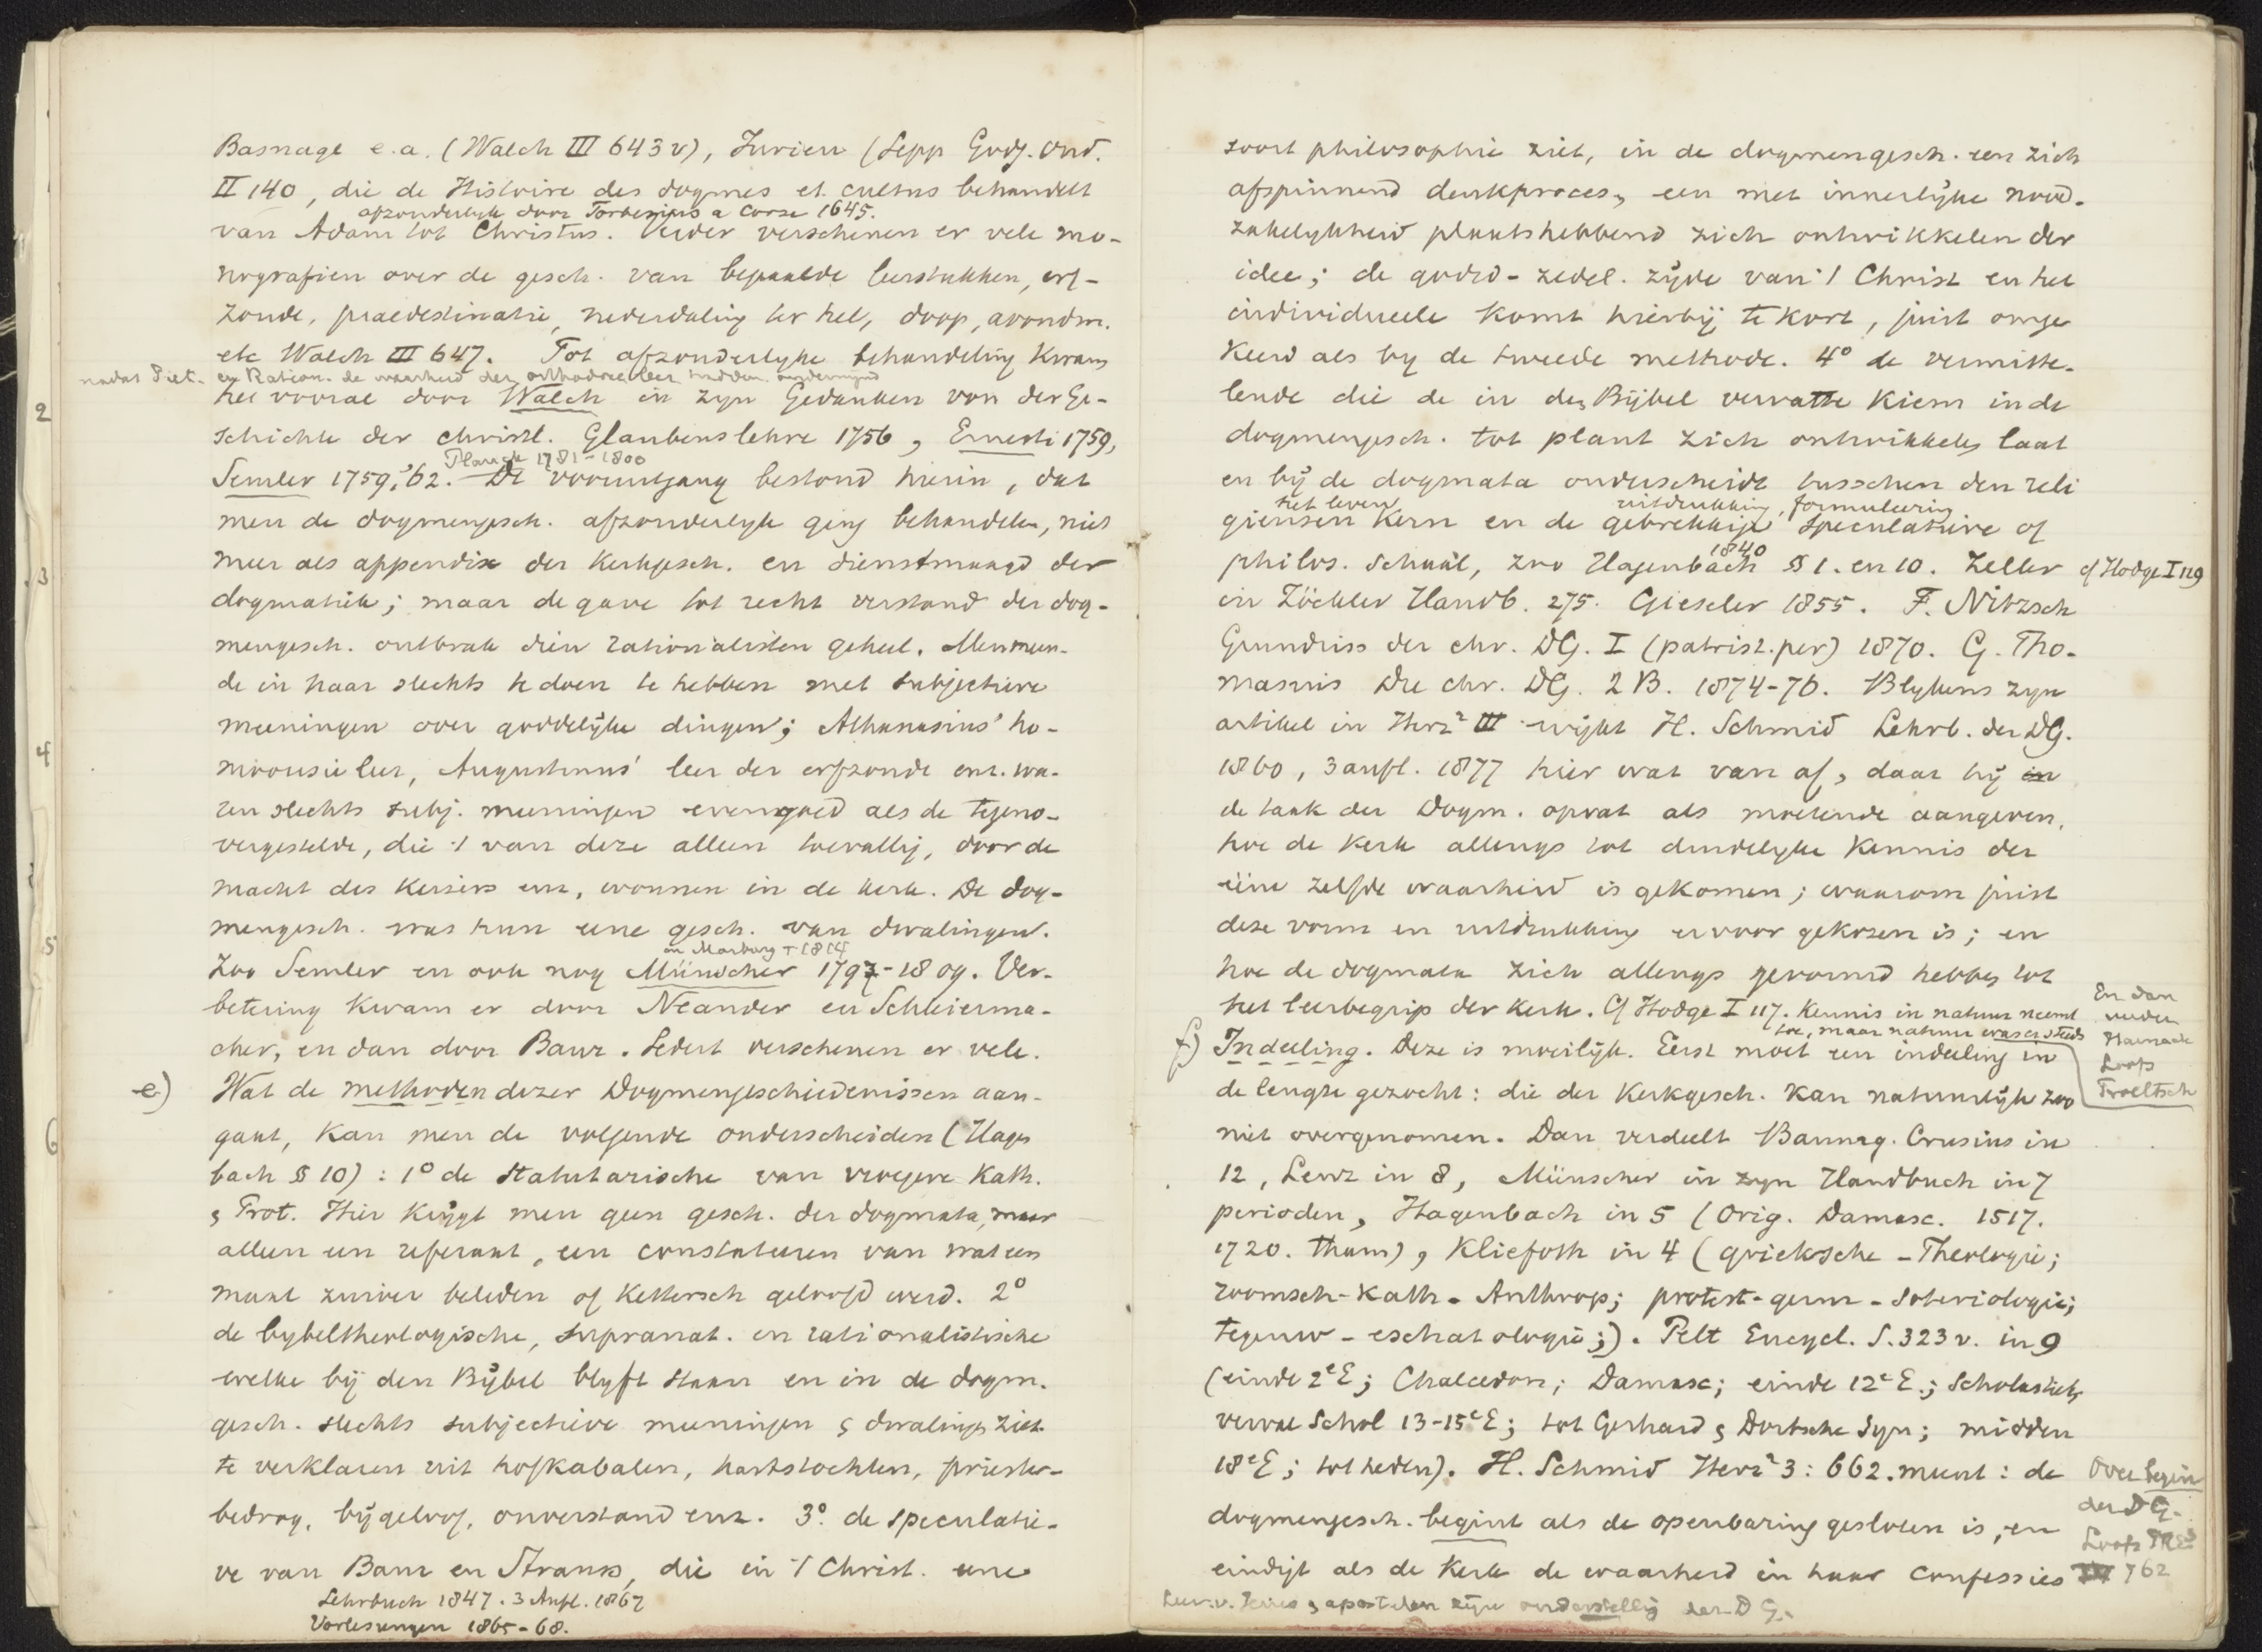 Basnage e.a. (Walch III 643 v), Jurieu (Sepp Godg. Ond.
II 140, die de Histoire des dogmes et cultus behandelt
afzonderlyk door Forbesius a Corse 1645.
van Adam tot Christus. Verder verschenen er vele mo-
nografien over de gesch. van bepaalde leerstukken, erf-
zonde, praedestinatie, nederdaling ter hel, doop, avondm.
etc Walch III 647. Tot afzonderlyke behandeling kwam
nadat Piet. en Ration. de waarheid der orthodoxe leer hadden ondermijnd
het vooral door Walch in zyn Gedanken von der Ge-
schichte der christl. Glaubenslehre 1756, Ernesti 1759,
Planck 1781-1800
Semler 1759, '62. De vooruitgang bestond hierin, dat
men de dogmengesch. afzonderlyk ging behandelen, niet
meer als appendix der Kerkgesch. en dienstmaagd der
dogmatiek; maar de gave tot recht verstand der dog-
mengesch. ontbrak dien rationalisten geheel. Men meen-
de in haar slechts te doen te hebben met subjectieve
meeningen over goddelijke dingen; Athanasius' ho-
moousie leer, Augustinus' leer der erfzonde enz. wa-
ren slechts subj. meeningen evengoed als de tegeno-
vergestelde, die 't van deze alleen toevallig, door de
macht des Keizers enz, wonnen in de kerk. De dog-
mengesch. was hun eene gesch. van dwalingen.
in Marburg † 1814
Zoo Semler en ook nog Münscher 1797-1809. Ver-
betering kwam er door Neander en Schleierma-
cher, en dan door Baur. Sedert verschenen er vele.
e) Wat de methoden dezer Dogmengeschiedenissen aan-
gaat, kan men de volgende onderscheiden (Hagen
bach § 10): 1° de statutarische van vroegere Kath.
& Prot. Hier krijgt men geen gesch. der dogmata, maar
alleen een referaat, een constateeren van wat een
maal zuiver beleden of Kettersch geloofd werd. 2°
de bybeltheologische, supranat. en rationalistische
welke bij den Bijbel blyft staan en in de dogm.
gesch. slechts subjectieve meeningen & dwalingen ziet
te verklaren uit hofkabalen, hartstochten, priester-
bedrog, bijgeloof, onverstand enz. 3°. de speculatie-
ve van Baur en Strauss, die in 't Christ. eene
Lehrbuch 1847. 3 Aufl. 1867
Vorlesungen 1865-68.
2
3
4
5
6
soort philosophie ziet, in de dogmengesch. een zich
afspinnend denkproces, een met innerlijke nood-
zakelykheid plaatshebbend zich ontwikkelen der
idee; de godsd-zedel. zijde van 't Christ en het
individueele komt hierbij te kort, juist omge
keerd als by de tweede methode. 4° de vermitte-
lende die de in den Bijbel vervatte kiem in de
dogmengesch. tot plant zich ontwikkelen laat
en bij de dogmata onderscheidt tusschen den reli
het leven uitdrukking, formuleering
gieusen Kern en de gebrekkige speculatieve of
1840
philos. Schaal, zoo Hagenbach §§ 1. en 10. Zeller cf Hodge I 119
in Zöckler Handb. 275. Gieseler 1855. F. Nitzsch
Grundriss der chr. DG. I (patrist. per) 1870. G. Tho-
masius Die chr. DG. 2 B. 1874-76. Blykens zyn
artikel in Herz² III wijkt H. Schmid Lehrb. der DG.
1860, 3 aufl. 1877 hier wat van af, daar hij in
de taak der Dogm. opvat als moetende aangeven,
hoe de Kerk allengs tot duidelyke kennis der
ééne zelfde waarheid is gekomen; waarom juist
deze vorm en uitdrukking ervoor gekozen is; en
hoe de dogmata zich allengs gevormd hebben tot
het leerbegrip der Kerk. Cf Hodge I 117. Kennis in natuur neemt
toe, maar natuur was er steeds
En dan
verder
Harnack
Loofs
Troeltsch
f) Indeeling. Deze is moeilijk. Eerst moet een indeeling in
de lengte gezocht: die der Kerkgesch. kan natuurlijk zoo
niet overgenomen. Dan verdeelt Baumg. Crusius in
12, Lenz in 8, Münscher in zyn Handbuch in 7
perioden, Hagenbach in 5 (Orig. Damasc. 1517.
1720. thans), Kliefoth in 4 (grieksche - Theologie;
roomsch-Kath - Anthrop; protest-germ - Soteriologie;
tegenw - eschatologie;). Pelt Encycl. S. 323 v. in 9
(einde 2e E; Chalcedon; Damasc; einde 12e E.; Scholastiek,
verval Schol 13-15e E; tot Gerhard & Dortsche Syn; midden
18e E; tot heden). H. Schmid Herz² 3: 662. meent: de
dogmengesch. begint als de openbaring gesloten is, en
eindigt als de Kerk de waarheid in haar confessies
Over begin
der DG.
Loofs PRE³
IV 762
Leer v. Jezus & apostelen zijn onderstelling der DG.